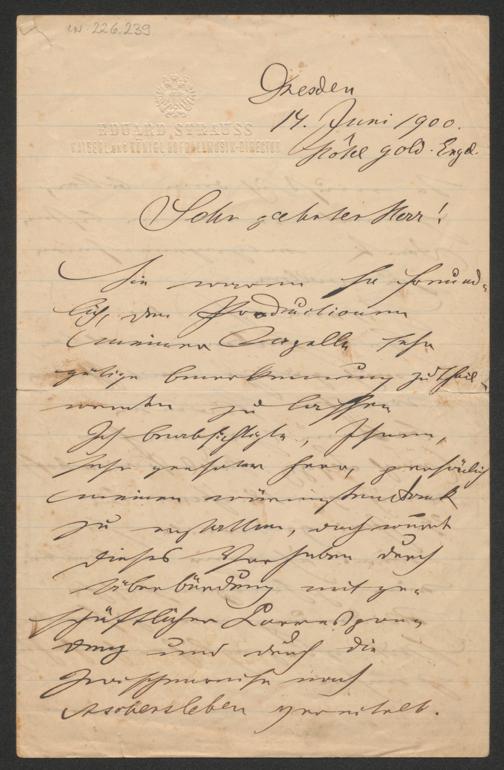 IN. 226.239
EDUARD STRAUSS
KAISERL. UND KÖNIGL. HOFBALLMUSIK-DIRECTOR
Dresden
14. Juni 1900.
Hôtel gold. Engel
Sehr geehrter Herr!
Sie waren so freund-
lich, den Productionen
meiner Capelle sehr
gütige Anerkennung zutheil
werden zu lassen
Ich beabsichtigte, Ihnen,
sehr geehrter Herr, persönlich
meinen wärmsten Dank
zu erstatten, doch wurde
dieses Vorhaben durch
Überbürdung mit ge-
schäftlicher Correspon-
denz und durch die
nach
Aschersleben vereitelt.